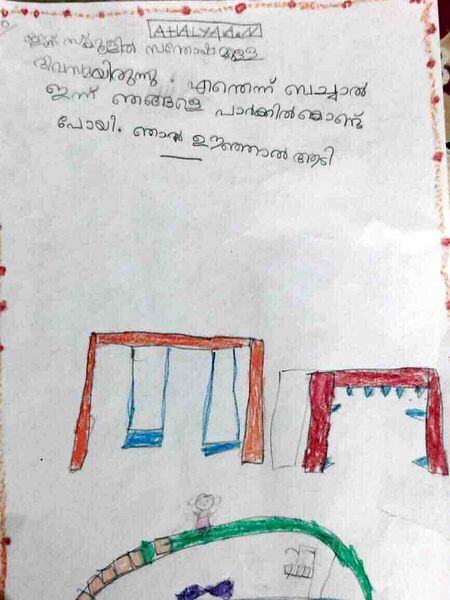 AHALYA.M.M
ഇന്ന് സ്കൂളിൽ സന്തോഷമുള്ള
ദിവസമായിരുന്നു. എന്തെന്ന് ബച്ചാൽ
ഇന്ന് ഞങ്ങളെ പാർക്കിൽകൊണ്ട്
പോയി. ഞാൻ ഊഞ്ഞാൽ ആടി